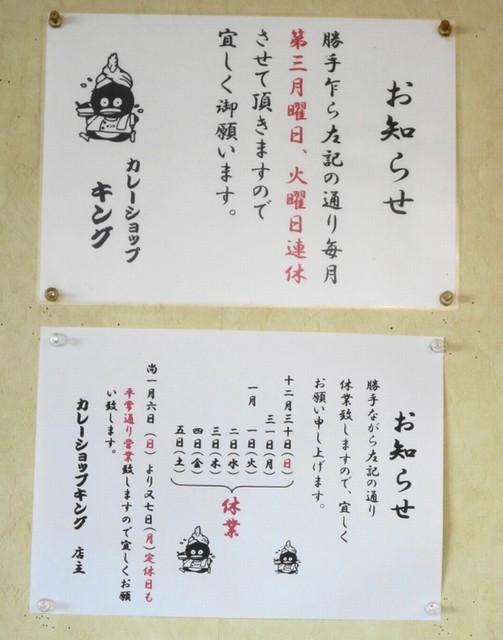 お知らせ
勝手乍ら左記の通り毎月
第三月曜日、火曜日連休
させて頂きますので
宜しく御願います。
カレーショップ
キング
お知らせ
勝手ながら左記の通り
休業致しますので、宜しく
お願い申し上げます。
十二月三十日(日)
三一日(月)
一月 一日(火)
二日(水)
三日(木)
四日(金)
五日(土)
休業
尚一月六日(日)より又七日(月)定休日も
平常通り営業致しますので宜しくお願
い致します。
カレーショップキング 店主